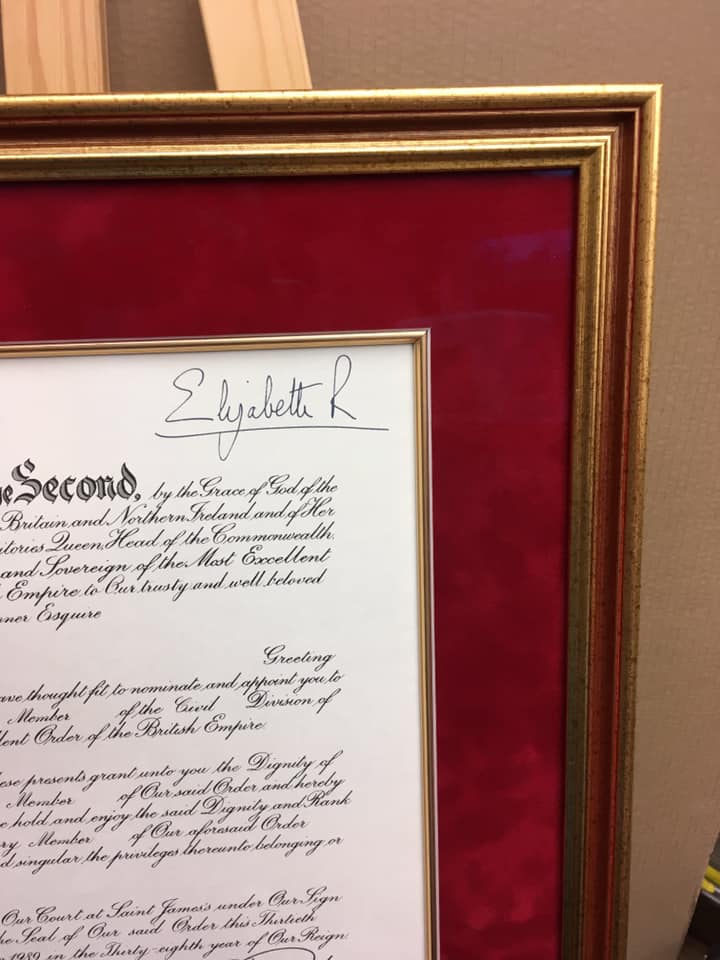 Elizabeth R
Second, by the Grace of God of the
Britain and Northern Ireland and of Her
itories Queen, Head of the Commonwealth,
and Sovereign of the Most Excellent
Empire to Our trusty and well beloved
ner Esquire
Greeting
ave thought fit to nominate and appoint you to
Member of the Civil Division of
lent Order of the British Empire
ese presents grant unto you the Dignity of
Member of Our said Order and hereby
hold and enjoy the said Dignity and Rank
ry Member of Our aforesaid Order
d singular the privileges thereunto belonging or
Our Court at Saint James's under Our Sign
he Seal of Our said Order this Thirtieth
1989 in the Thirty-eighth year of Our Reign